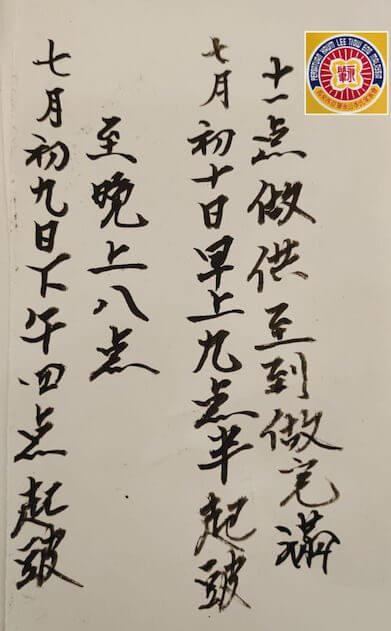 七月初九日下午四点起皷
至晚上八点
七月初十日早上九点半起皷
十一点做供至到做完满
PERSATUAN KAUM LEE TIOW MALAYSIA